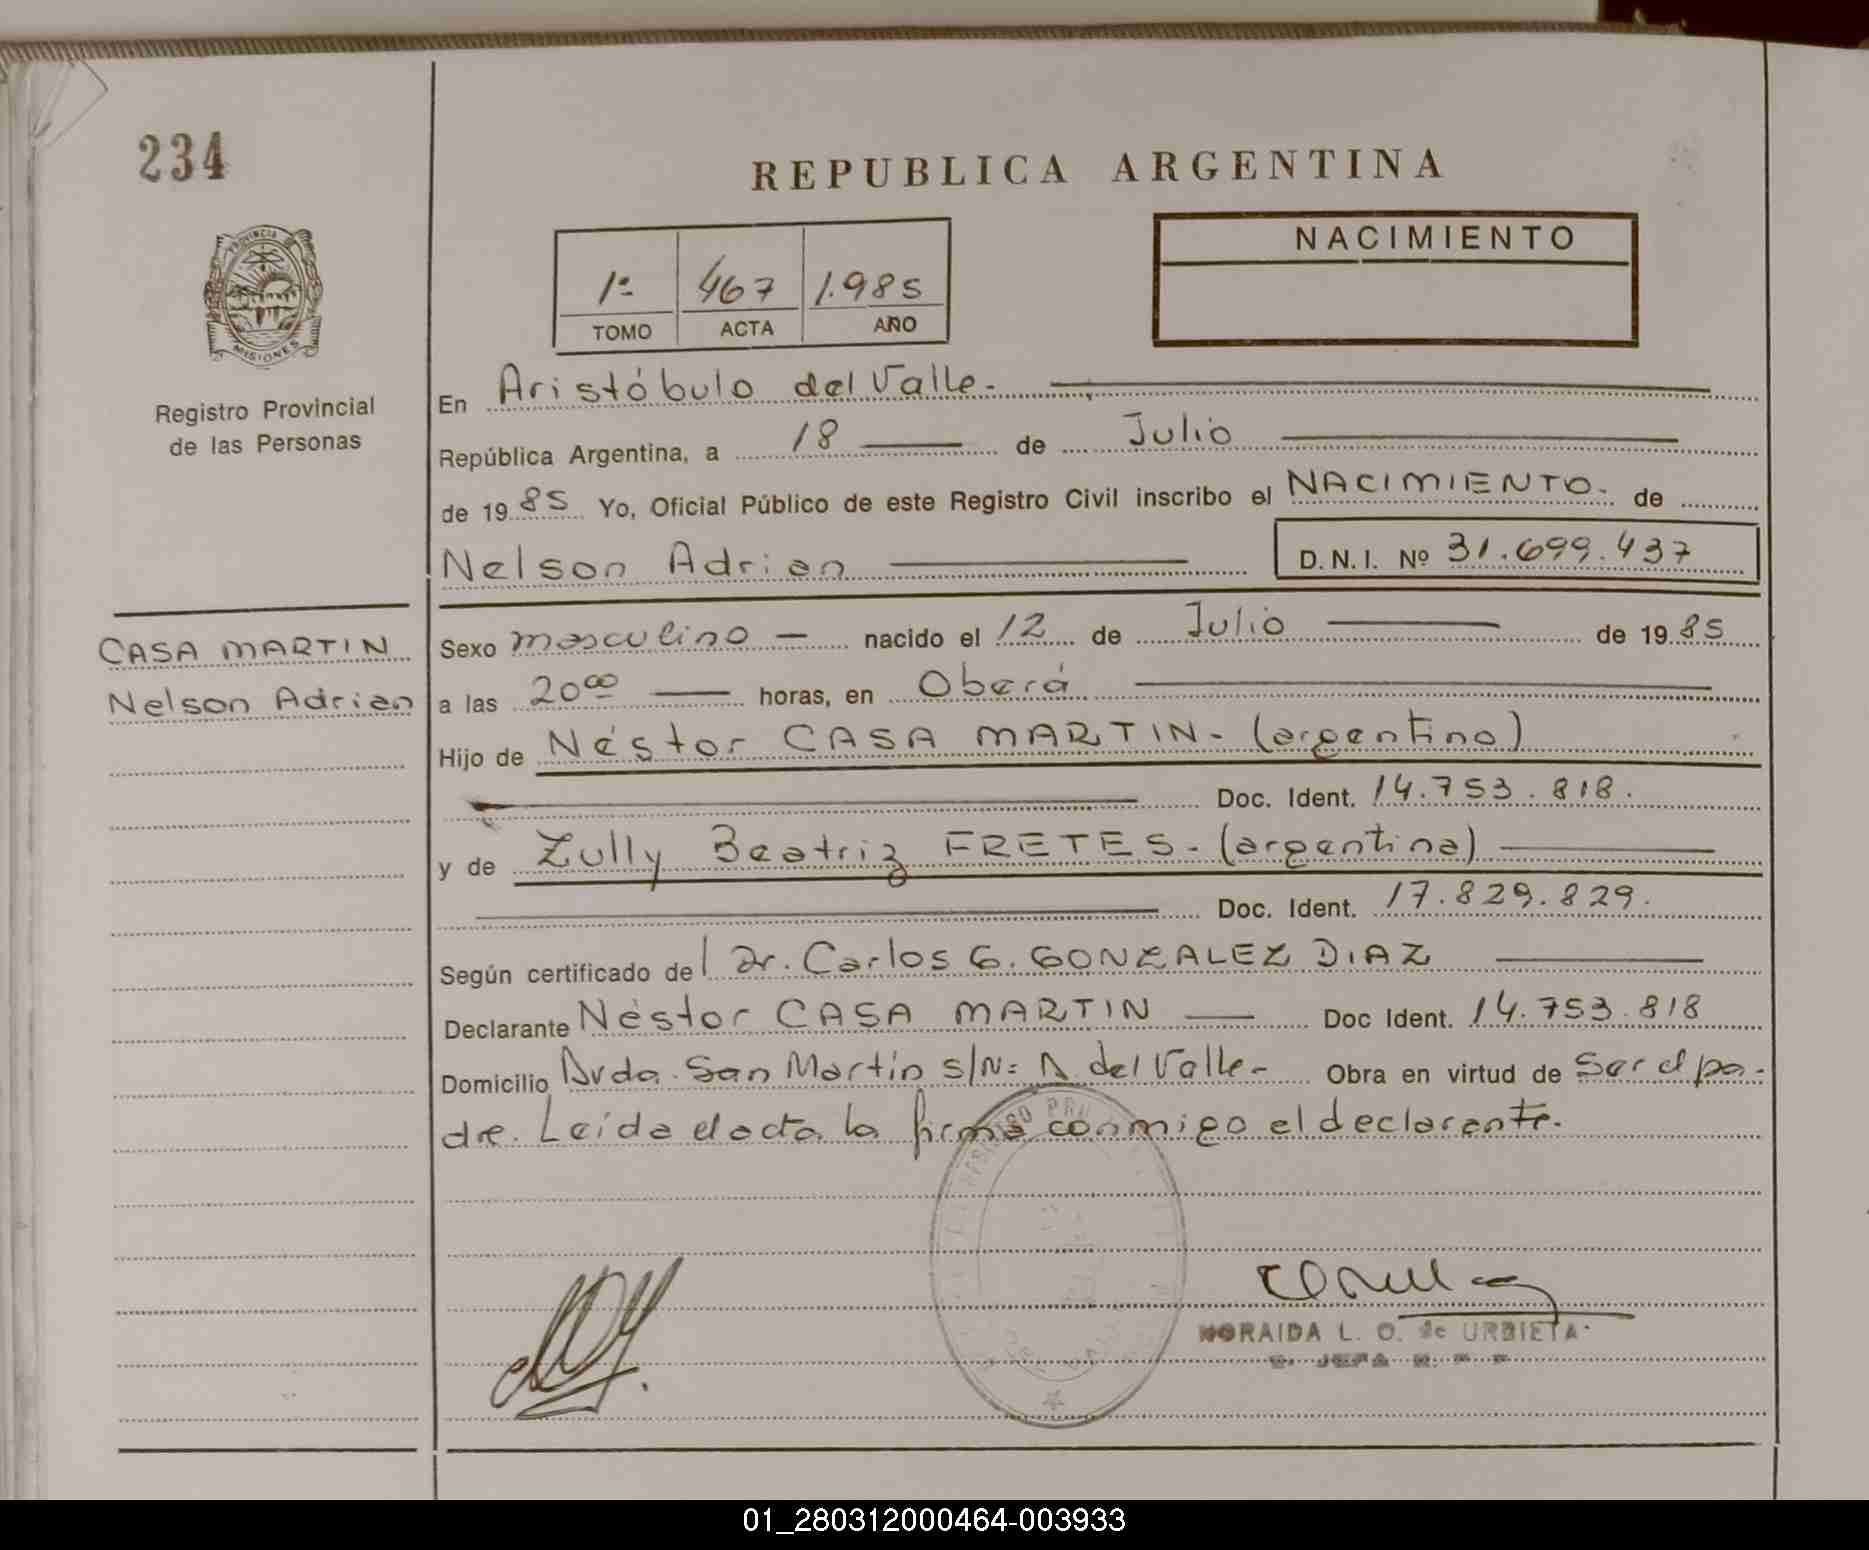 234
REPUBLICA ARGENTINA
PROVINCIA DE
MISIONES
Registro Provincial
de las Personas
1º 467 1.985
TOMO ACTA AÑO
NACIMIENTO
En Aristóbulo del Valle.
República Argentina, a 18 de Julio
de 1985 Yo, Oficial Público de este Registro Civil inscribo el NACIMIENTO. de
Nelson Adrian D.N.I. Nº 31.699.437
CASA MARTIN
Nelson Adrian
Sexo masculino nacido el 12 de Julio de 1985
a las 20⁰⁰ horas, en Oberá
Hijo de Néstor CASA MARTIN - (argentino)
Doc. Ident. 14.753.818.
y de Zully Beatriz FRETES - (argentina)
Doc. Ident. 17.829.829.
Según certificado del Dr. Carlos G. GONZALEZ DIAZ
Declarante Néstor CASA MARTIN Doc Ident. 14.753.818
Domicilio Avda. San Martín s/Nº A del Valle - Obra en virtud de Ser el pa-
dre. Leída el acta la firma conmigo el declarante.
NORAIDA L. O. de URBIETA
01_280312000464-003933